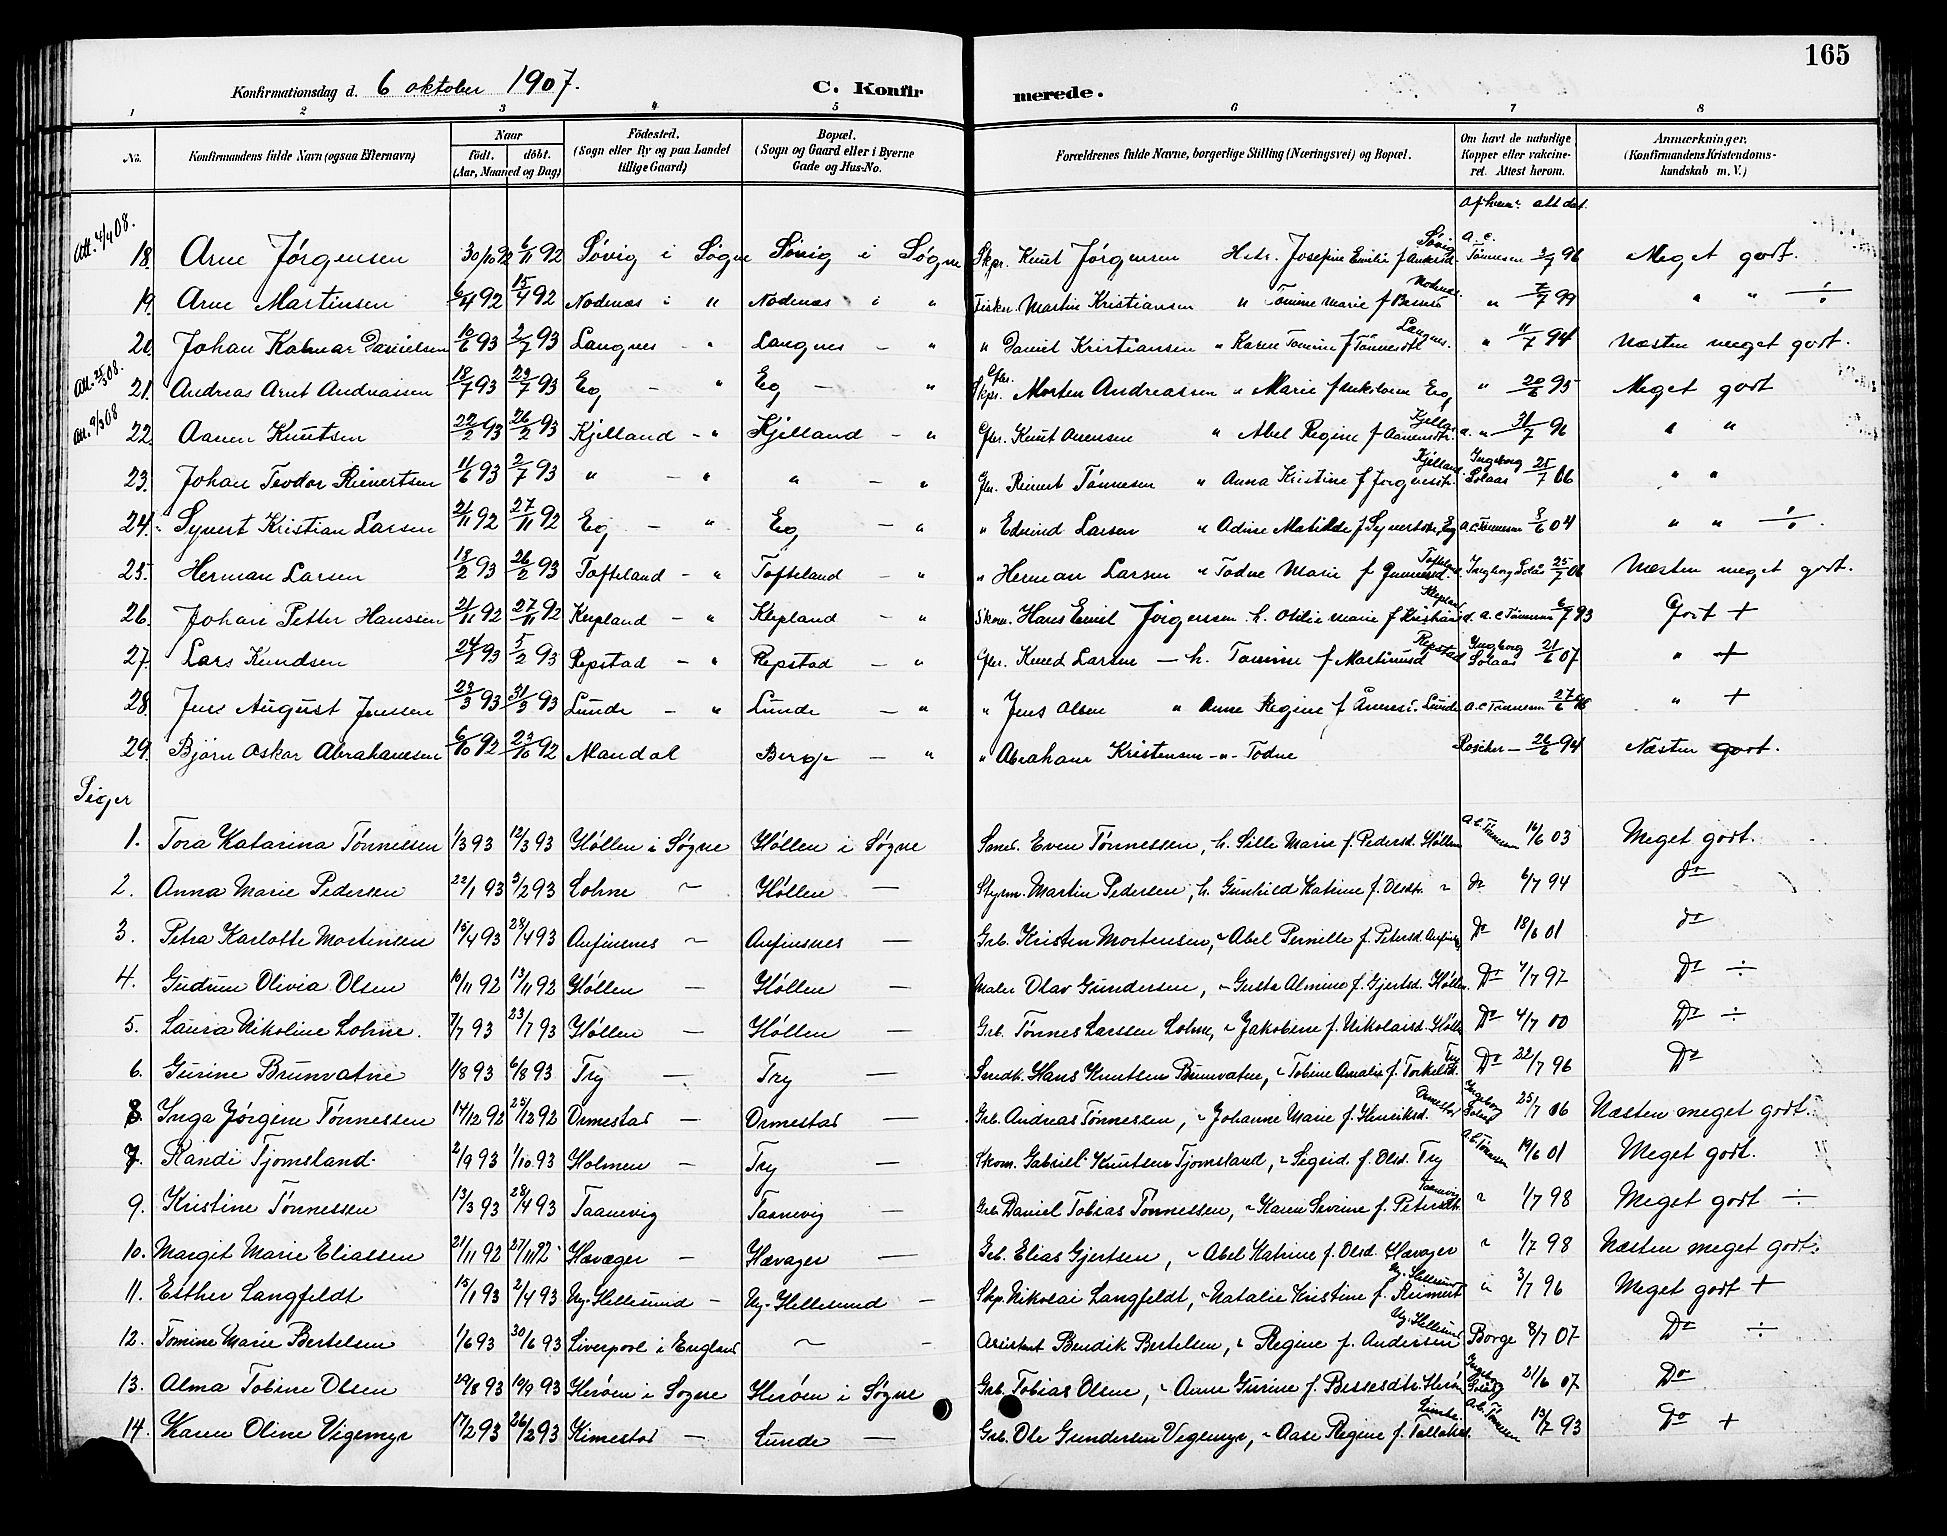 165
Konfirmationsdag d. 6 oktober 1907. C. Konfirmerede.
1 2 3 4 5 6 7 8
No. Konfirmandens fulde Navn (ogsaa Efternavn) Naar födt. döbt. (Aar, Maaned og Dag) Födested. (Sogn eller By og paa Landet tillige Gaard) Bopæl. (Sogn og Gaard eller i Byerne Gade og Hus-No. Forældrenes fulde Navne, borgerlige Stilling (Næringsvei) og Bopæl. Om havt de naturlige Kopper eller vakcineret. Attest herom. Anmærkninger. (Konfirmandens Kristendomskundskab m. V.)
Af hvem. att dat.
Att. 4/4 08. 18. Arne Jörgensen 30/10 92 6/11 92 Søvig i Søgne Søvig i Søgne Skpr. Knut Jørgensen Hstr. Josefine Emilie f Anders. Søvig A. C. Tønnesen 2/7 96 Meget godt.
19. Arne Martinsen 6/4 92 15/4 92 Nodenæs i " Nodenæs i " Fisker. Martin Kristiansen " Tomine Marie f Bents Nodenæs " 2/7 99 " " ÷
20. Johan Kalmar Danielsen 10/6 93 2/7 93 Langnes - " Langnes - " " Daniel Kristiansen " Karen Tomine f Tønnesdtl Langnes. " 11/7 94 Næsten meget godt.
Att. 25/3 08. 21. Andreas Arnt Andreassen 18/7 93 23/7 93 Eg - " Eg - " Gbr. Skpr. Morten Andreassen " Marie f Eg " 20/6 95 Meget godt
Att. 9/3 08 22 Aanen Knutsen 22/2 93 26/2 93 Kjelland - " Kjelland - " Gbr. Knut Anensen " Abel Regine f Aanensdtr. Kjelld. a. " 31/7 96 " "
23. Johan Teodor Reinertsen 11/6 93 2/7 93 " - " " - " Gbr. Reinert Tønnesen " Anna Kristine f Jørgensdtr. Kjelland Ingeborg Solaas 25/7 06 " "
24. Syvert Kristian Larsen 21/11 92 27/11 92 Eg - " Eg - " " Edvind Larsen " Adine Matilde f Syvertsdtr. Eg A.C Tønnesen 8/6 04 " " ÷
25. Herman Larsen 18/2 93 26/2 93 Tofteland - " Tofteland - " " Herman Larsen " Todne Marie f Gunnarsd. Toftland. Ingborg Solås 25/7 06 Næsten meget godt.
26. Johan Petter Hanssen 21/11 92 27/11 92 Klepland - " Klepland - " Skom. Hans Emil Jørgensen h. Otilie Marie f Kristiansd. Klepland a. c Tønnesen 6/7 93 Godt +
27. Lars Knudsen 24/1 93 5/2 93 Repstad - " Repstad - " Gbr. Knud Larsen - h. Tomine f Martinusd Repstad Ingborg Solaas 21/6 07 " +
28. Jens August Jenssen 23/3 93 31/3 93 Lunde - " Lunde - " " Jens Olsen " Anne Regine f Ånens. Lunde A.C Tønnesen 27/6 " +
29. Björn Oskar Abrahamsen 6/10 92 23/10 92 Mandal Berge - " " Abraham Kristensen -"- Todne Roscher - 26/6 94 Næsten godt.
Piger
1. Tora Katarina Tønnessen 1/3 93 12/3 93 Høllen i Søgne Høllen i Søgne Sømd. Even Tønnessen, h. Sille Marie f. Pedersd. Høllen A.C. Tønnesen 16/6 03 Meget godt.
2. Anna Marie Pedersen 22/1 93 3/2 93 Lohne ~ Høllen - Styrm. Martin Pedersen, h. Gunhild Katrine f. Olsdtr. ~ do 6/7 94 do
3. Petra Karlotte Mortensen 15/4 93 23/4 93 Aufinsnes ~ Aufinsnes - Grb. Kristen Mortensen, ~ Abel Pernille f. Petersd. Aufins. Do 18/6 01 do
4. Gudrun Olivia Olsen 10/11 92 13/11 92 Høllen - Høllen - Maler Olav Gundersen, ~ Gusta Almine f. Gjertsd. Høllen. Do 7/7 97 Do ÷
5. Laura Nikoline Lohne. 7/7 93 23/7 93 Høllen - Høllen - Grb. Tønnes Larssen Lohne, ~ Jakobine f. Nikolaisd. Høllen Do 4/7 00 Do ÷
6. Gurine Brunvatne 1/8 93 6/8 93 Try - Try - Smedm. Hans Knutsen Brunvatne, ~ Tobine Amalie f. Torkelsd. Try Do 22/7 96 Do
8. Inga Jörgine Tønnessen 14/12 92 25/12 92 Ormestad - Ormestad - Grb. Andreas Tønnessen, ~ Johanne Marie f. Henriksd. Ormestad Ingeborg Solaas 25/7 06 Næsten meget godt.
7. Randi Tjomsland 2/9 93 1/10 93 Holmen - Try - Skom. Gabriel Knutsen Tjomsland, ~ Sigrid f. Olsd. Try A.C. Tønnesen 19/6 01 Meget godt.
9. Kristine Tønnessen 13/3 93 28/4 93 Taanevig Taanevig - Grb. Daniel Tobias Tønnessen, ~ Karen Sevrine f. Petersdtr. Taanevig ~ 1/7 98 Meget godt ÷
10. Margit Marie Eliassen 21/11 92 27/11 92 Hævager - Hævager - Grb. Elias Gjertsen, ~ Abel Katrine f. Olsd. Hævager ~ 1/7 98 Næsten meget godt.
11. Esther Langfeldt 15/1 93 2/4 93 Ny-Hellesund - Ny-Hellesund - Skp. Nikolai Langfeldt, ~ Natalie Kristine f. Reinert Ny. Hellesund ~ 3/7 96 Meget godt +
12. Tomine Marie Bertelsen 1/6 93 30/6 93 Liverpool i England ~ - Assistent Bendik Bertelsen, ~ Regine f. Andersen Ny. Hellesund Borge 8/7 07 Do ÷
13. Alma Tobine Olsen 29/8 93 19/9 93 Herøen i Søgne Herøen i Søgne Grb. Tobias Olsen, ~ Anne Gurine f. Bessesdtr. Herøen Ingeborg Solaas 21/6 07 Do
14. Karen Oline Vigemyr 17/2 93 26/2 93 Kimestad - Lunde - Grb. Ole Gundersen Vigemyr, ~ Aase Regine f. Tallaks. Lunde. A.C. Tønnesen 13/7 93 Do +